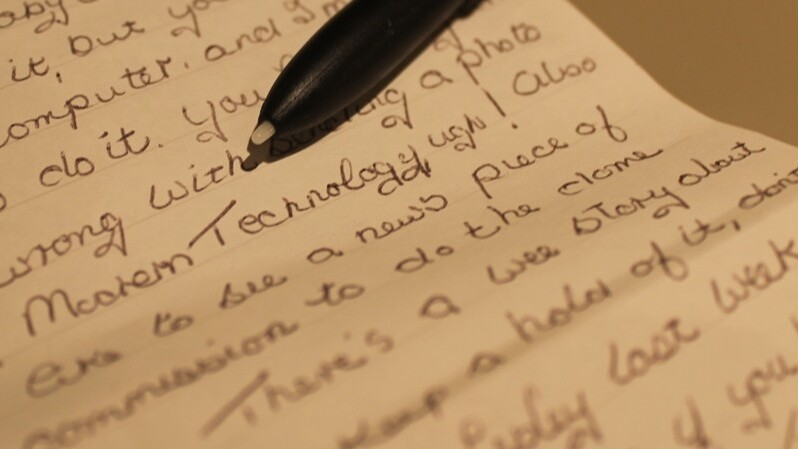 it, but you
computer. and I'm
do it. You a photo
wrong with sending a
Modern Technology ugh! I also
like to see a news piece of
commission to do the clome
There's a wee story about
keep a hold of it, don't
last week
if you